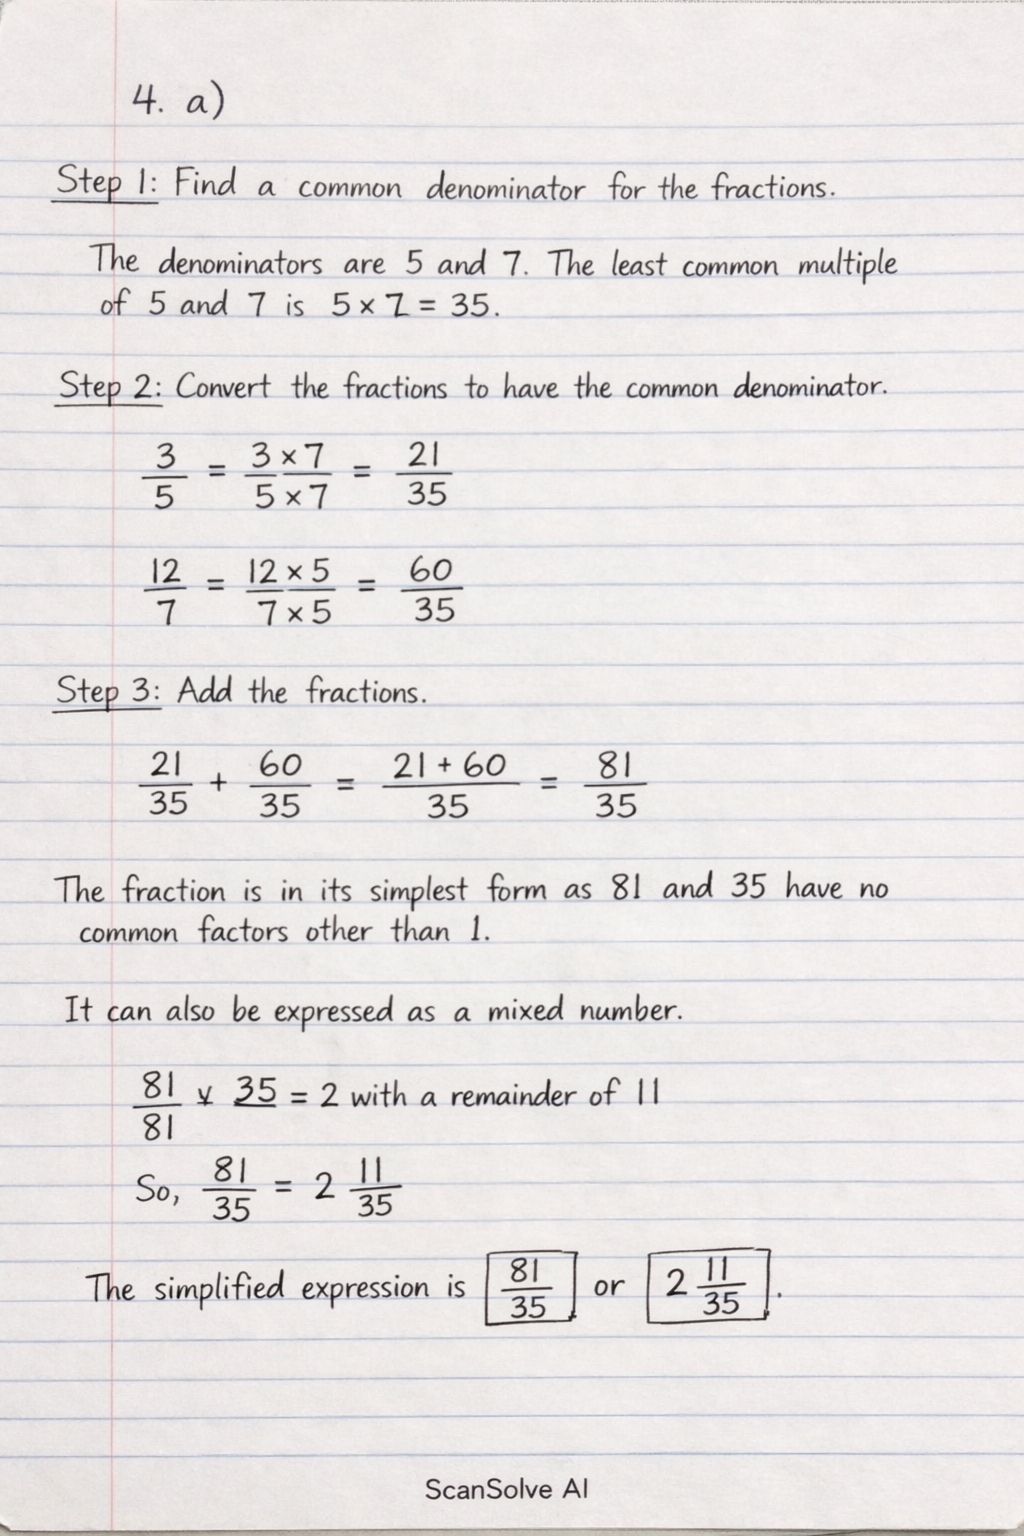 4. a)
Step 1: Find a common denominator for the fractions.
The denominators are 5 and 7. The least common multiple
of 5 and 7 is 5 × 7 = 35.
Step 2: Convert the fractions to have the common denominator.
3/5 = (3 × 7)/(5 × 7) = 21/35
12/7 = (12 × 5)/(7 × 5) = 60/35
Step 3: Add the fractions.
21/35 + 60/35 = (21 + 60)/35 = 81/35
The fraction is in its simplest form as 81 and 35 have no
common factors other than 1.
It can also be expressed as a mixed number.
81/81 × 35 = 2 with a remainder of 11
So, 81/35 = 2 11/35
The simplified expression is 81/35 or 2 11/35.
ScanSolve AI